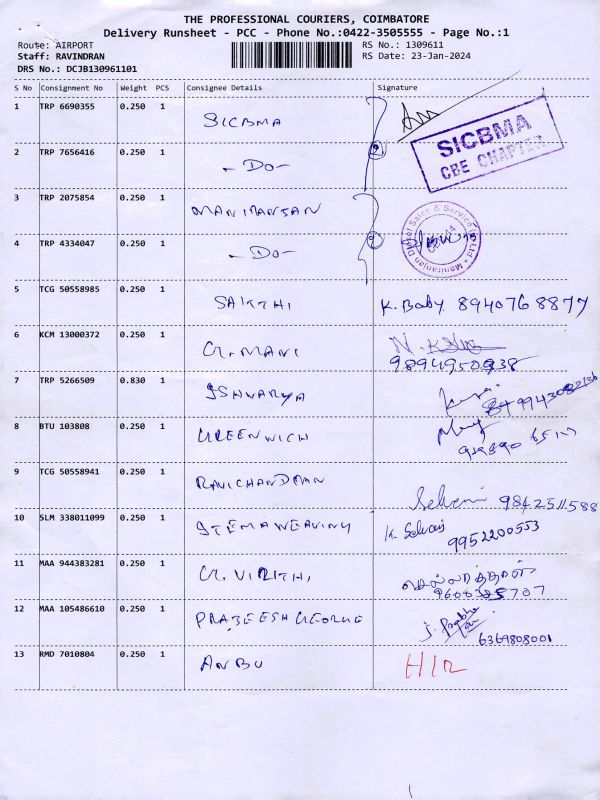 THE PROFESSIONAL COURIERS, COIMBATORE
Delivery Runsheet - PCC - Phone No.:0422-3505555 - Page No.:1
Route: AIRPORT RS No.: 1309611
Staff: RAVINDRAN RS Date: 23-Jan-2024
DRS No.: DCJB130961101
S No Consignment No Weight PCS Consignee Details Signature
1 TRP 6690355 0.250 1 SICBMA
SICBMA
CBE CHAPTER
2 TRP 7656416 0.250 1 -DO-
3 TRP 2075854 0.250 1 MANIRANJAN
Maniranjan Diesel Sales & Service (P) Ltd
4 TRP 4334047 0.250 1 -DO-
5 TCG 50558985 0.250 1 SAKTHI K. Baby 8940768877
6 KCM 13000372 0.250 1 G.MANI
9894950938
7 TRP 5266509 0.830 1 ISHWARYA
8 BTU 103808 0.250 1 GREENWICH
9 TCG 50558941 0.250 1 RAVICHANDRAN Selvani 9842511588
10 SLM 338011099 0.250 1 STEMAWEAVING K. Selvaj
9952200553
11 MAA 944383281 0.250 1 G. VIRTHI
12 MAA 105486610 0.250 1 PRAJEESH GEORGE J. Prabha
6369808001
13 RMD 7010804 0.250 1 ANBU